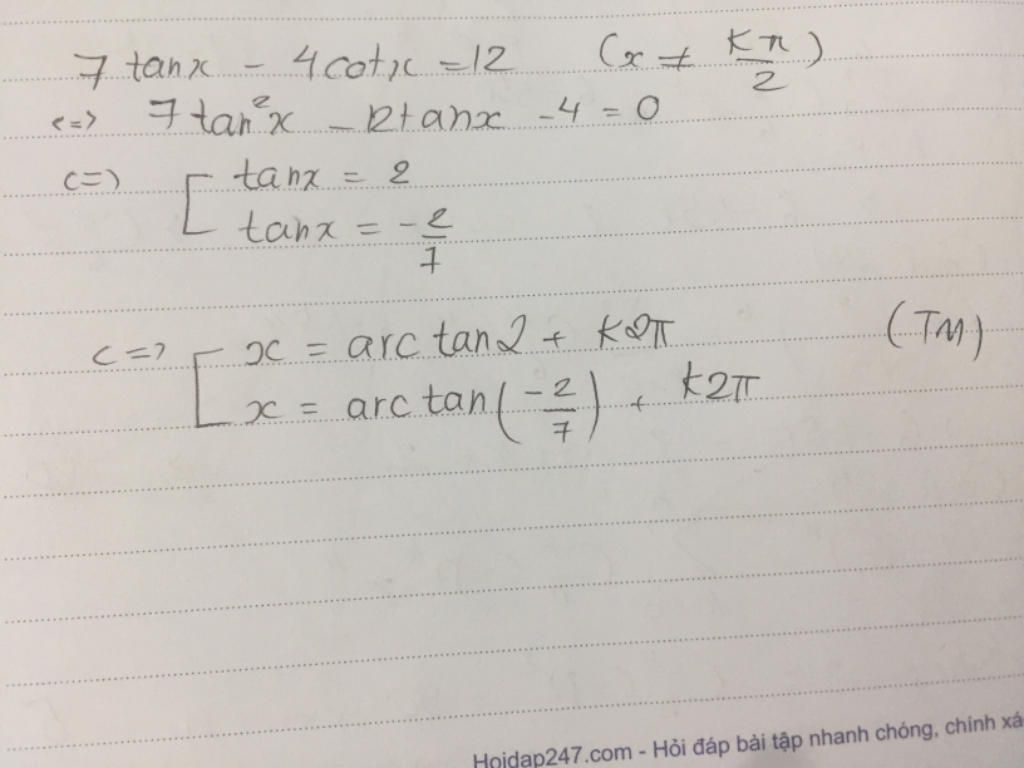 7 tanx - 4cotx = 12 (x ≠ Kπ/2)
<=> 7tan²x - 12tanx - 4 = 0
<=> [ tanx = 2
tanx = -2/7
<=> [ x = arctan2 + K2π (TM)
x = arctan(-2/7) + K2π
Hoidap247.com - Hỏi đáp bài tập nhanh chóng, chính xá